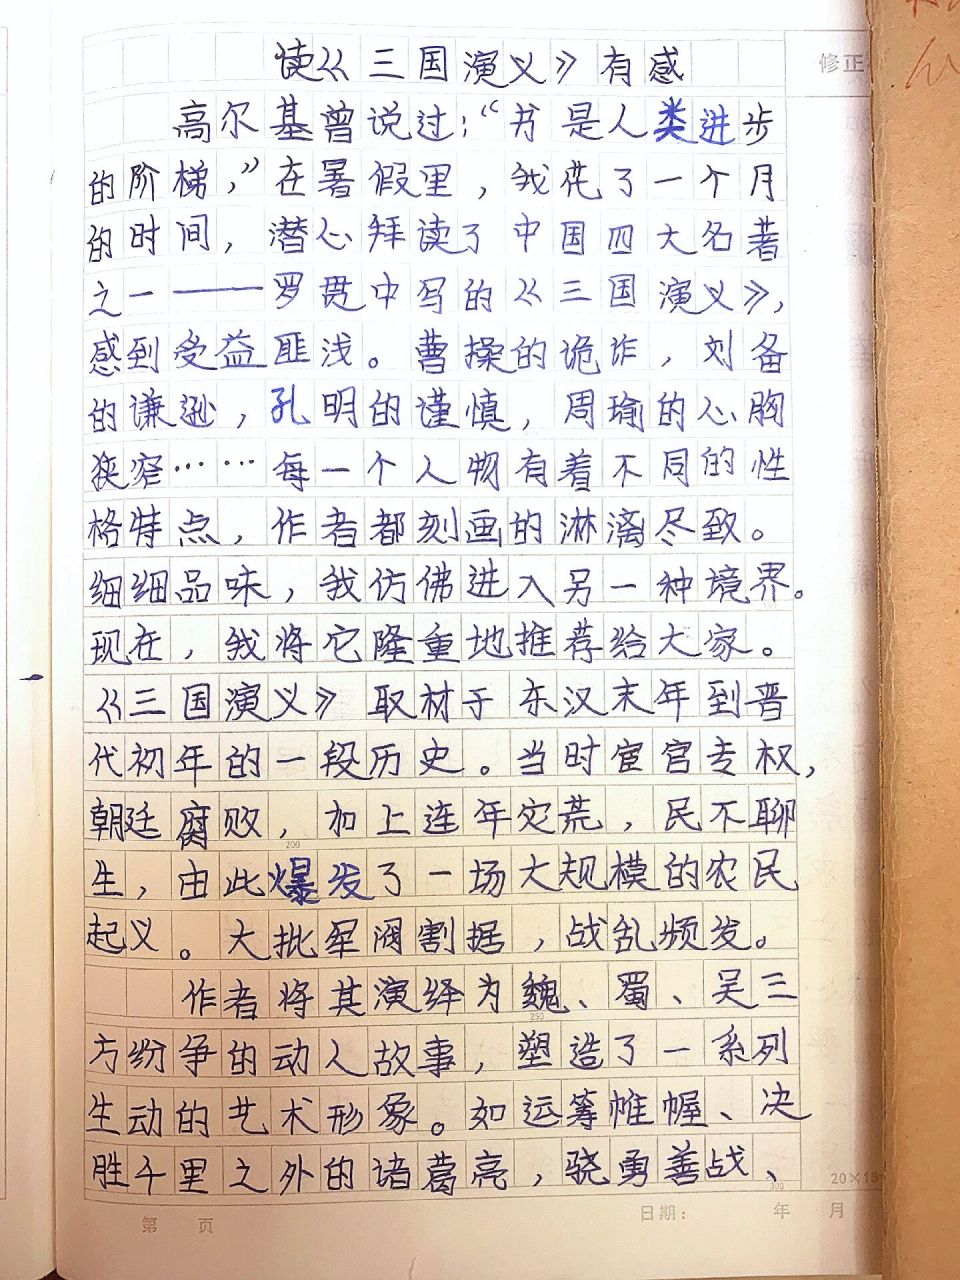 读《三国演义》有感
修正
高尔基曾说过:“书是人类进步
的阶梯,”在暑假里,我花了一个月
的时间,潜心拜读了中国四大名著
之一——罗贯中写的《三国演义》,
感到受益匪浅。曹操的诡诈,刘备
的谦逊,孔明的谨慎,周瑜的心胸
狭窄……每一个人物有着不同的性
格特点,作者都刻画的淋漓尽致。
细细品味,我仿佛进入另一种境界。
现在,我将它隆重地推荐给大家。
《三国演义》取材于东汉末年到晋
代初年的一段历史。当时宦官专权,
朝廷腐败,加上连年灾荒,民不聊
200
生,由此爆发了一场大规模的农民
起义。大批军阀割据,战乱频发。
作者将其演绎为魏、蜀、吴三
250
方纷争的动人故事,塑造了一系列
生动的艺术形象。如运筹帷幄、决
胜千里之外的诸葛亮,骁勇善战、
300
20×15
第 页 日期: 年 月